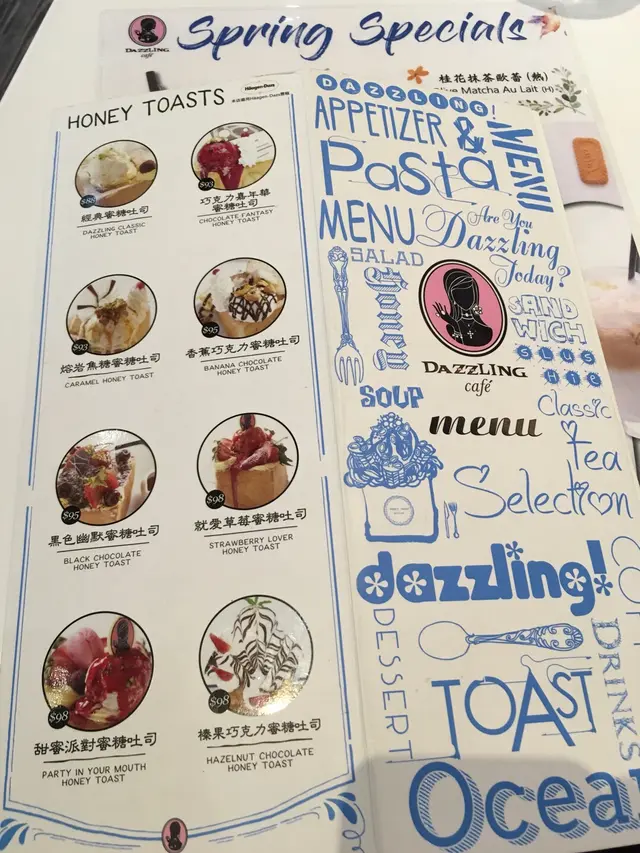 DAZZLING
café
Spring Specials
桂花抹茶歐蕾 (熱)
Matcha Au Lait (H)
HONEY TOASTS
Häagen-Dazs
$88
經典蜜糖吐司
DAZZLING CLASSIC
HONEY TOAST
$93
巧克力嘉年華
蜜糖吐司
CHOCOLATE FANTASY
HONEY TOAST
$93
熔岩焦糖蜜糖吐司
CARAMEL HONEY TOAST
$95
香蕉巧克力蜜糖吐司
BANANA CHOCOLATE
HONEY TOAST
$95
黑色幽默蜜糖吐司
BLACK CHOCOLATE
HONEY TOAST
$98
就愛草莓蜜糖吐司
STRAWBERRY LOVER
HONEY TOAST
$98
甜蜜派對蜜糖吐司
PARTY IN YOUR MOUTH
HONEY TOAST
$98
榛果巧克力蜜糖吐司
HAZELNUT CHOCOLATE
HONEY TOAST
DAZZLING!
APPETIZER &
MENU
Pasta
MENU
Are You
Dazzling
Today?
SALAD
SAND
WICH
SLUS
HIE
DAZZLING
café
SOUP
menu
Classic
Tea
Selection
dazzling!
DESSERT
DRINKS
TOAST
Ocea